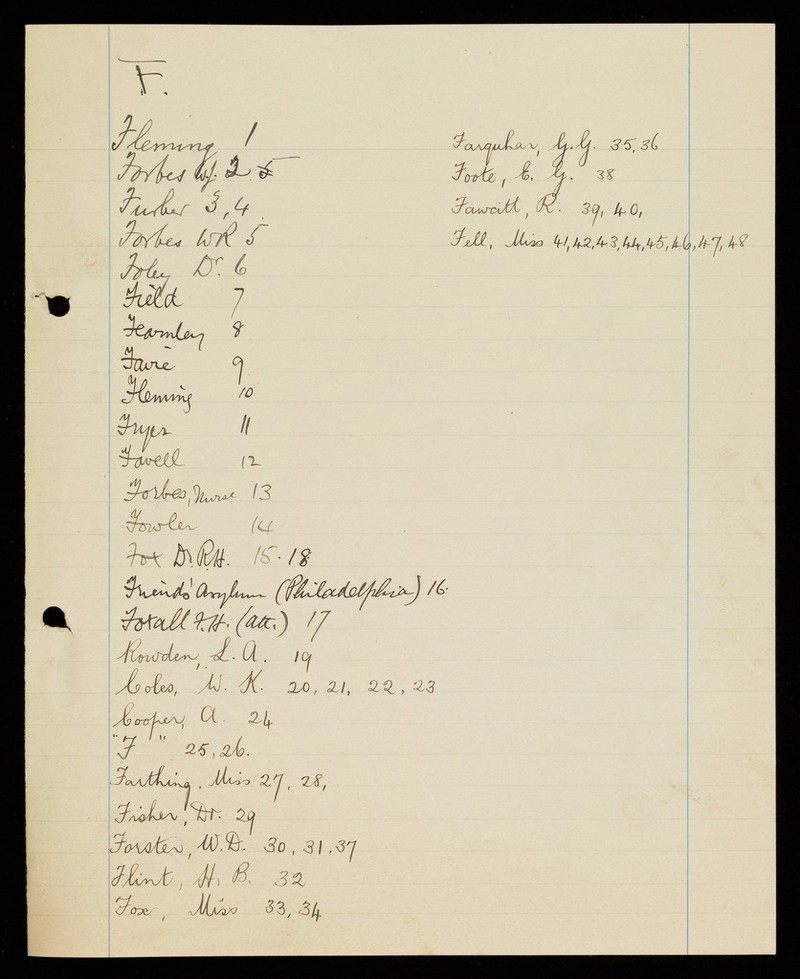 F.
Fleming 1
Forbes W. 2. 5
Furber 3, 4.
Forbes WR 5
Foley Dr. 6
Field 7
Fearnley 8
Favre 9
Fleming 10
Fryer 11
Favell 12
Forbes, Nurse 13
Fowler 14
Fox Dr. R.H. 15. 18
Friends' Asylum (Philadelphia) 16.
Foxall F.H. (att.) 17
Rowden, L. A. 19
Coles, W. K. 20, 21, 22, 23
Cooper, A. 24
"F" 25, 26.
Farthing, Miss 27, 28,
Fisher, Dr. 29
Forster, W.D. 30, 31. 37
Flint, H. B. 32
Fox, Miss 33, 34
Farquhar, G.G. 35, 36
Foote, E. G. 38
Fawcitt, R. 39, 40,
Fell, Miss 41, 42, 43, 44, 45, 46, 47, 48